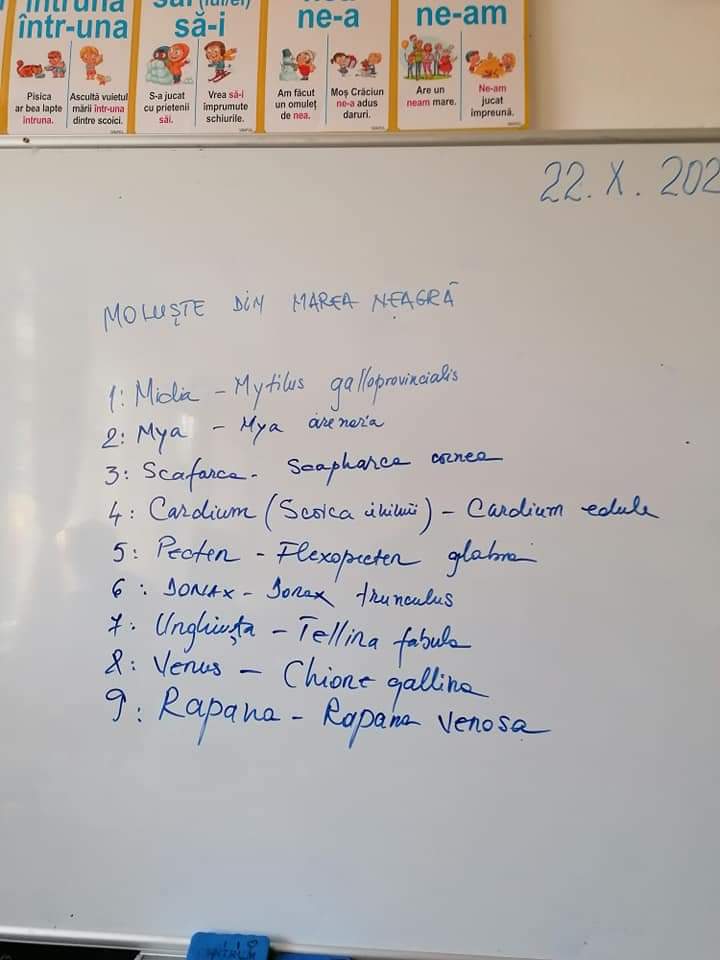 într-una
să-i
ne-a
ne-am
Pisica
ar bea lapte
întruna.
Ascultă vuietul
mării într-una
dintre scoici.
S-a jucat
cu prietenii
săi.
Vrea să-i
împrumute
schiurile.
Am făcut
un omuleț
de nea.
Moș Crăciun
ne-a adus
daruri.
Are un
neam mare.
Ne-am
jucat
împreună.
22. X. 202
MOLUȘTE DIN MAREA NEAGRĂ
1: Midia - Mytilus galloprovincialis
2: Mya - Mya arenaria
3: Scafarca - Scapharca cornea
4: Cardium (Scoica inimii) - Cardium edule
5: Pecten - Flexopecten glabra
6: DONAX - Donax trunculus
7: Unghiuța - Tellina fabula
8: Venus - Chione gallina
9: Rapana - Rapana venosa